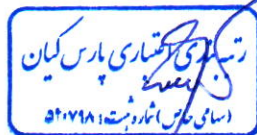 رتبه‌بندی اعتباری پارس کیان
(سهامی خاص) شماره ثبت: ۵۴۰۷۹۸